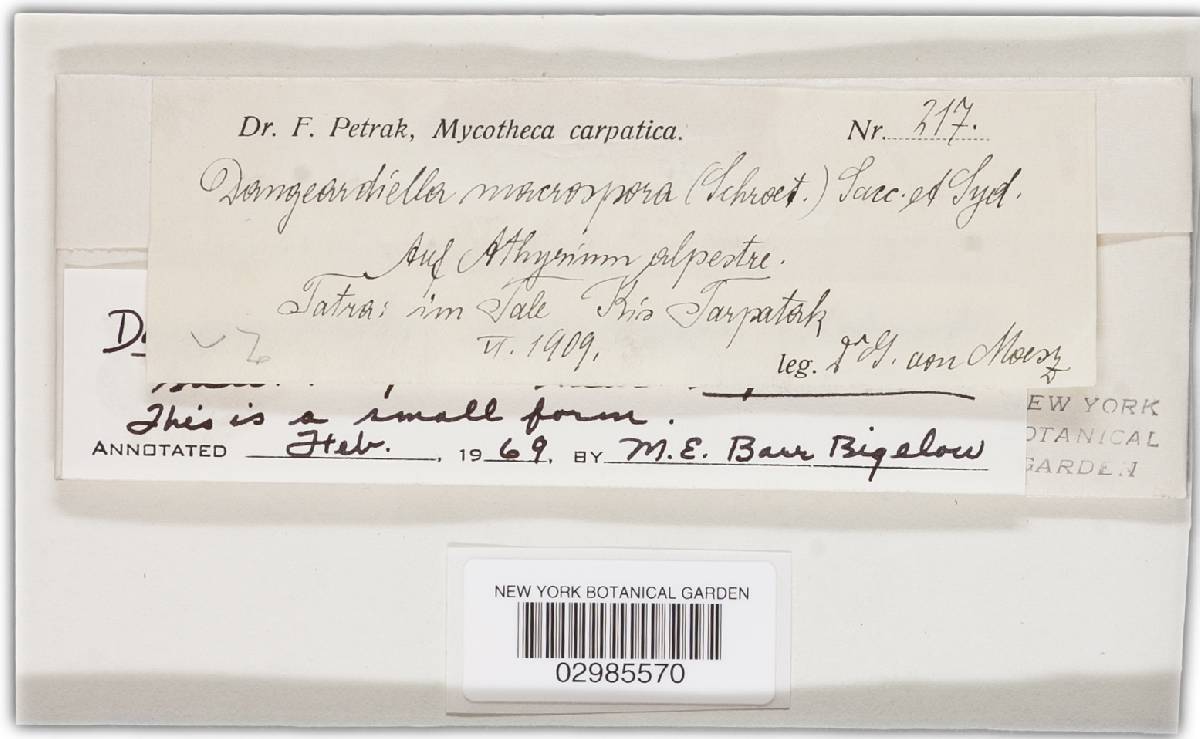 Dr. F. Petrak, Mycotheca carpatica. Nr. 217.
Dangeardiella macrospora (Schroet.) Sacc. et Syd.
Auf Athyrium alpestre.
Tatra: im Tale Kis Tarpatak
VI. 1909. leg. Dr G. von Moesz
This is a small form.
ANNOTATED Feb., 1969, BY M.E. Barr Bigelow
EW YORK
OTANICAL
GARDEN
NEW YORK BOTANICAL GARDEN
02985570